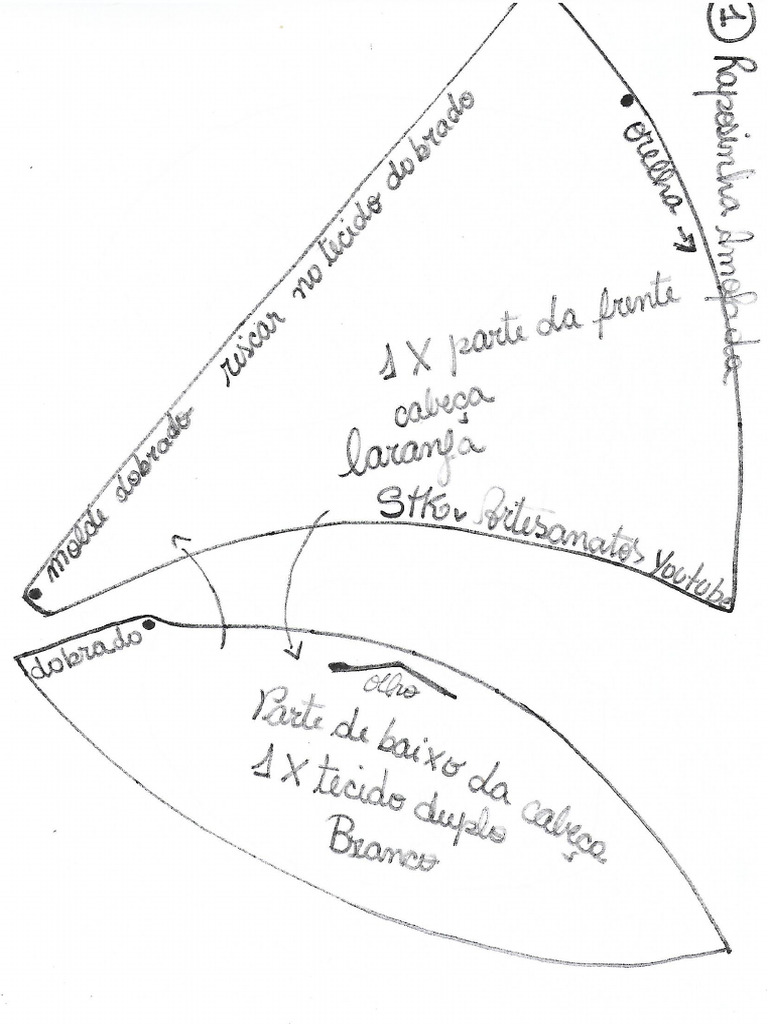 ① Raposinha Amofada
orelha →
molde dobrado riscar no tecido dobrado
1 X parte da frente
cabeça
laranja
Stk. Artesanatos Youtube
dobrado
olho
Parte de baixo da cabeça
1 X tecido duplo
Branco